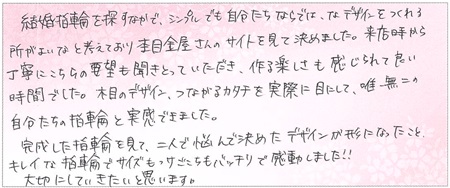 結婚指輪を探すなかで、シンプルでも自分たちならでは、なデザインをつくれる
所がよいなと考えており杢目金屋さんのサイトを見て決めました。来店時から
丁寧にこちらの要望も聞きとっていただき、作る楽しさも感じられて良い
時間でした。木目のデザイン、つながるカタチを実際に目にして、唯一無二の
自分たちの指輪と実感できました。
完成した指輪を見て、二人で悩んで決めたデザインが形になったこと、
キレイな指輪でサイズもつけごこちもバッチリで感動しました!!
大切にしていきたいと思います。